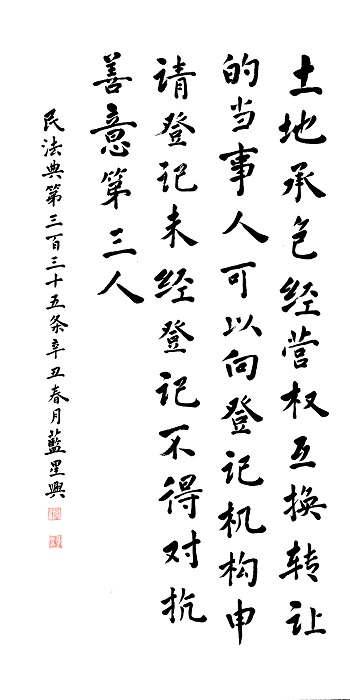 土地承包经营权互换转让
的当事人可以向登记机构申
请登记未经登记不得对抗
善意第三人
民法典第三百三十五条辛丑春月藍星興